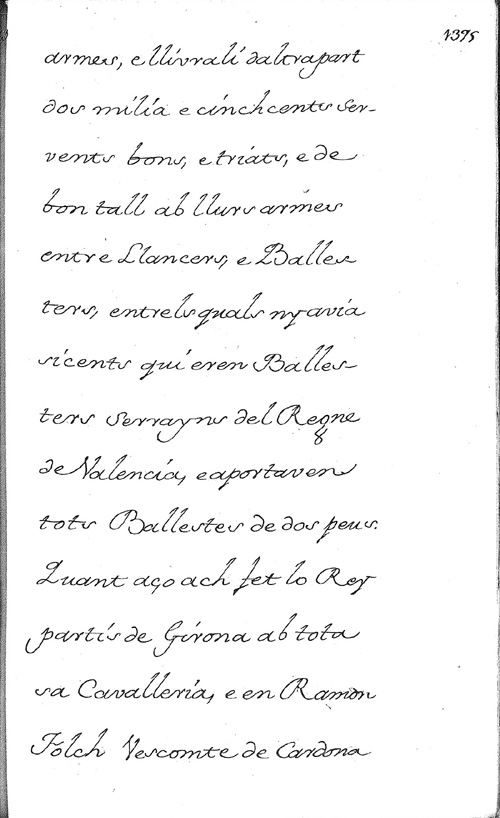 1375
armes, e llivrali daltrapart
dos milia e cinchcents ser-
vents bons, e triats, e de
bon tall ab llurs armes
entre Llancers, e Balles-
ters, entrels quals ny avia
sicents qui eren Balles-
ters serrayns del Regne
de Valencia, e aportaven
tots Ballestes de dos peus.
Quant aço ach fet lo Rey
partis de Girona ab tota
sa Cavalleria, e en Ramon
Folch Vescomte de Cardona